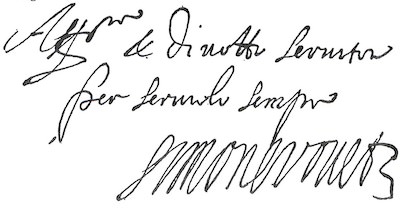 & Divotto Servitor
per servirla sempre
Simon Vouet